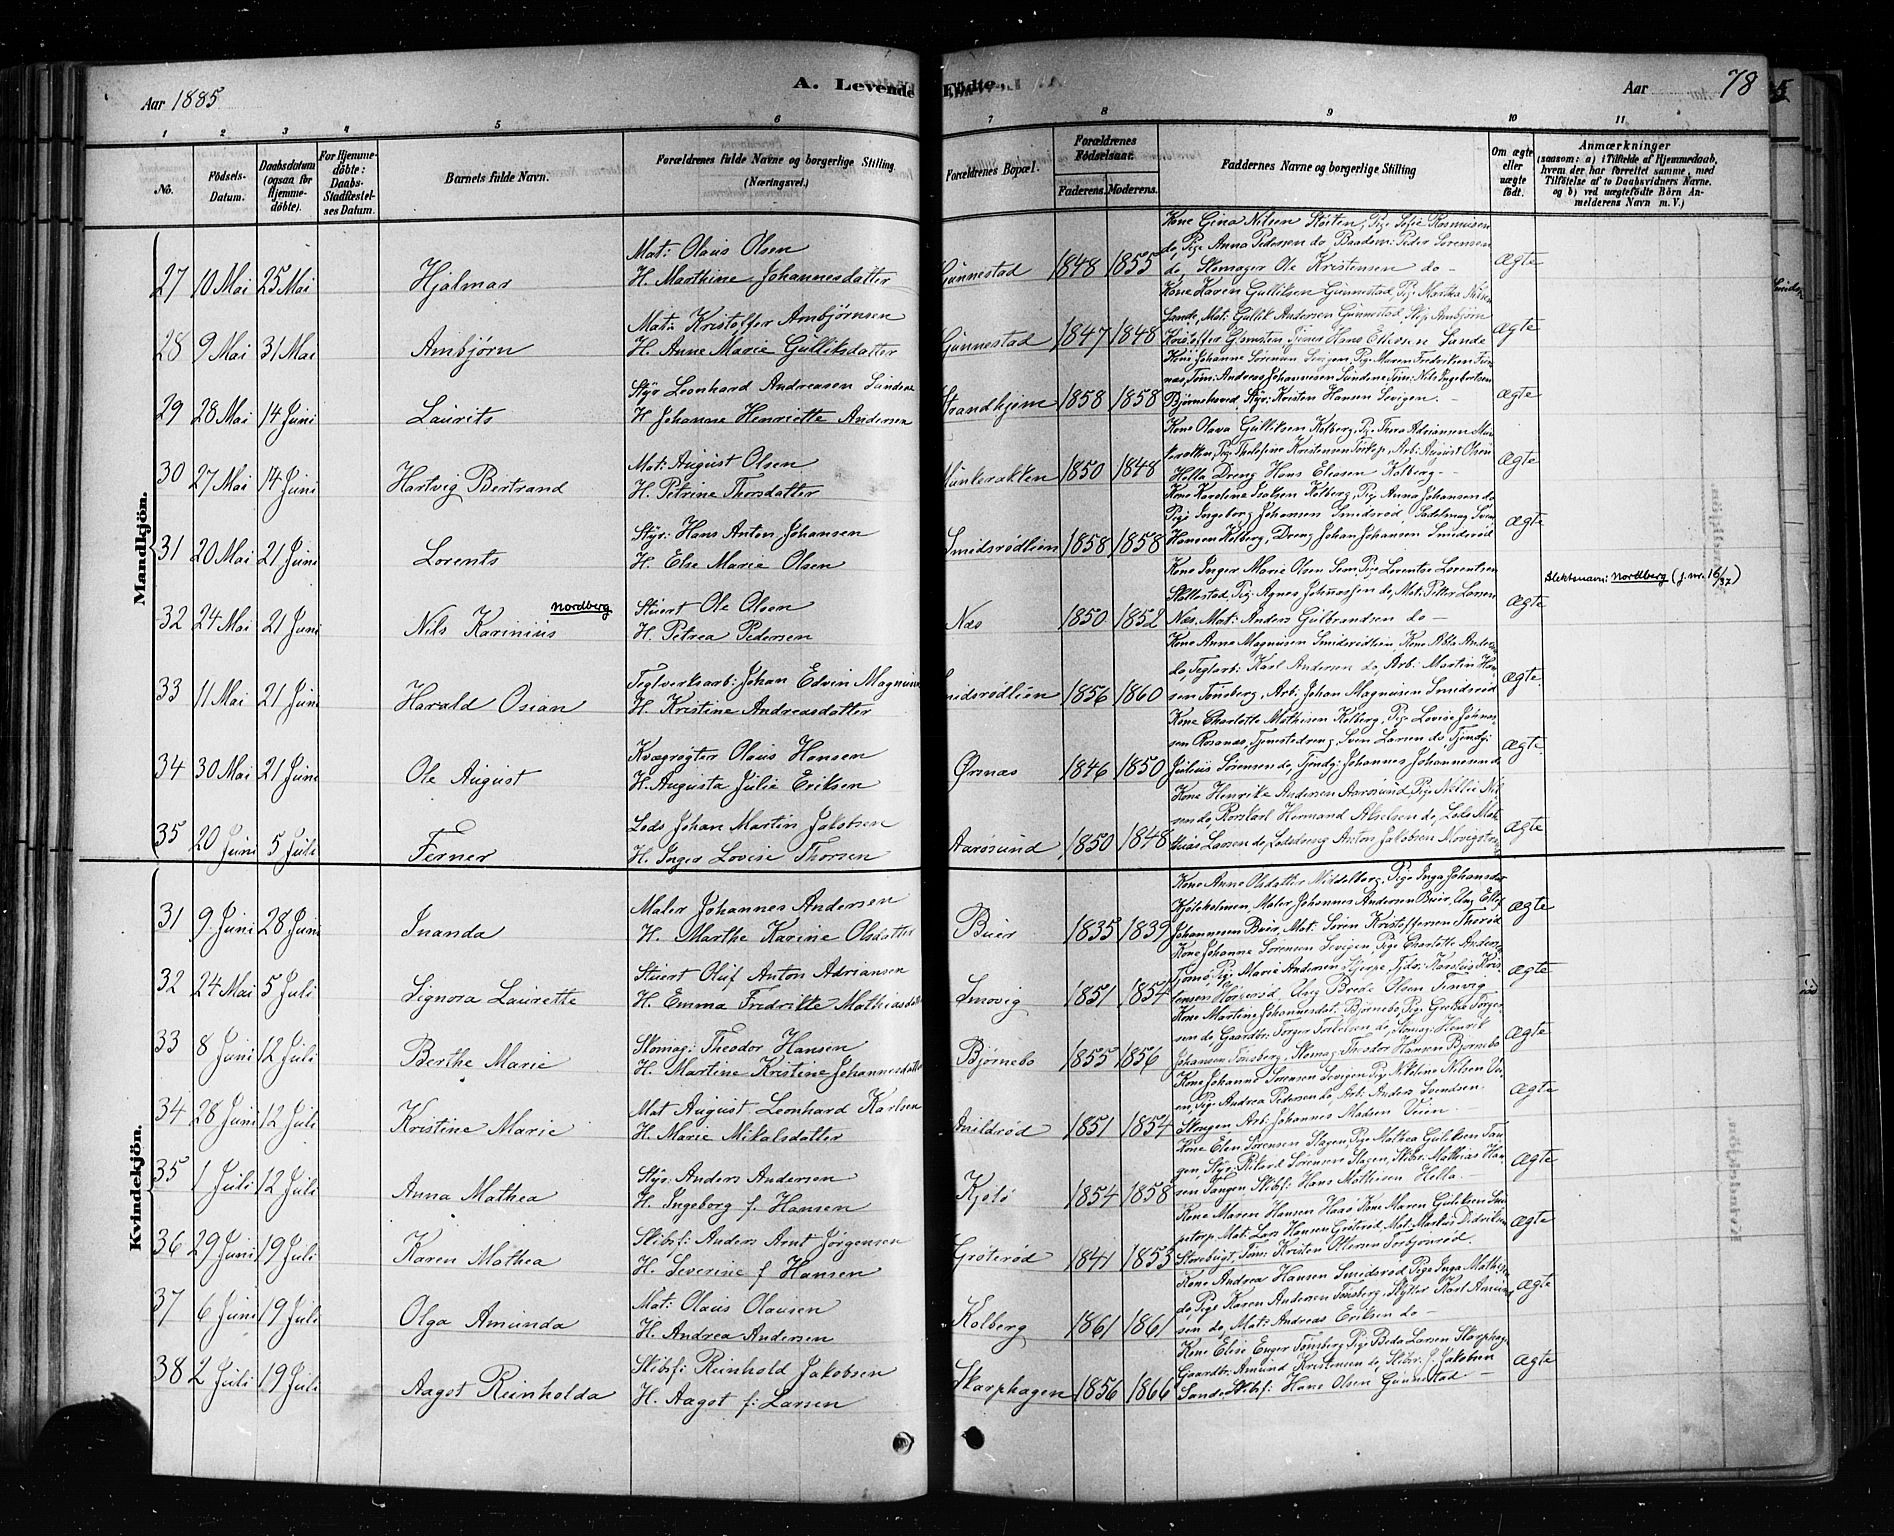 Aar 1885
A. Levende Fødte.
Aar
78
1 2 3 4 5 6 7 8 9 10 11
No.
Fødsels-Datum.
Daabsdatum (ogsaa for Hjemmedøbte).
For Hjemmedøbte: Daabs-Stadfæstelses Datum.
Barnets fulde Navn.
Forældrenes fulde Navne og borgerlige Stilling. (Næringsvei.)
Forældrenes Bopæl.
Forældrenes Fødselsaar.
Faderens. Moderens.
Faddernes Navne og borgerlige Stilling
Om ægte eller uægte født.
Anmærkninger (saasom: a) i Tilfælde af Hjemmedaab, hvem der har forrettet samme, med Tilføielse af to Daabsvidners Navne, og b) ved uægtefødte Børn Anmelderens Navn m. V.)
Mandkjön.
27 10 Mai 25 Mai Hjalmar
Mat: Olaus Olsen
H. Marthine Johannesdatter
Gunnestad 1848 1855
Kone Gina Nilsen Skiten, Pige Sofie Rasmussen
do, Pige Anna Pedersen do Baadsm: Peder Sørensen
do, Skomager Ole Kristensen do –
Ægte
28 9 Mai 31 Mai Ambjørn
Mat: Kristoffer Ambjørnsen
H. Anne Marie Gulliksdatter
Gunnestad 1847 1848
Kone Karen Gulliksen Gunnestad, Pige Martha Nilsen
Sande, Mat: Gullik Andersen Gunnestad, Skip. Ambjørn
Kristoffer Tjener Hans Ellefsen Sande
Ægte
29 28 Mai 14 Juni Laurits
Styr Leonhard Andreasen Sundene
H Johanne Henriette Andersen
Strandhjem 1858 1858
Kone Johanne Sørensen Sevigen, Pige Maren Fredriksen
Tøm: Andreas Johannesen Sundene Tøm: Nils Ingebretsen
Bjørnehoved, Styr: Kristen Hansen Sevigen. –
Ægte
30 27 Mai 14 Juni Hartvig Bertrand
Mat: August Olsen
H. Petrine Thorsdatter
Munkerakken 1850 1848
Kone Olava Gulliksen Kolberg, Pige Thora Adriansen
Pige Kristensen Torkop, Arb: August Olsen
Hella Dreng Hans Eliasen Kolberg –
Ægte
31 20 Mai 21 Juni Lorents
Styr: Hans Anton Johansen
H. Else Marie Olsen
Smidsrødlien 1858 1858
Kone Karoline Isaksen Kolberg, Pige Anna Johansen do
Pige Ingeborg Johansen Smidsrød, Sadelmag Sven
Hansen Kolberg, Dreng Johan Johansen Smidsrød
Ægte
32 24 Mai 21 Juni Nils Karinius Nordberg
Stuert Ole Olsen
H. Petrea Pedersen
Næs 1850 1852
Kone Inger Marie Olsen Sem, Pige Lorentse Lorentsen
Skallestad, Pige: Agnes Johannesen do, Mat: Petter Larsen
Næs, Mat: Anders Gulbrandsen do –
Ægte
Slektsnavn: Nordberg (j.nr. 16/37)
33 11 Mai 21 Juni Harald Osian
Teglverksarb: Johan Edvin Magnusen
H. Kristine Andreasdatter
Smidsrødlien 1856 1860
Kone Anne Magnusen Smidsrødlien, Kone Abla Andersen
do, Teglarb: Karl Andersen do, Arb: Martin Han-
sen Tønsberg, Arb: Johan Magnusen Smidsrød
Ægte
34 30 Mai 21 Juni Ole August
Kvægrøgter Olaus Hansen
H. Augusta Julie Eriksen
Ørsnæs 1846 1850
Kone Charlotte Mathisen Kolberg, Pige Lovise Johans-
sen Rosanæs, Tjenestedreng Sven Larsen do, Tjendg:
Julius Sørensen do, Tjendg: Johannes Johannesen do
Ægte
35 20 Juni 5 Juli Ferner
Lods Johan Martin Jakobsen
H. Inger Lovise Thorsen
Aarøsund 1850 1848
Kone Henrike Andersen Aarøsund, Pige Nellie Nil-
sen do, Rorskarl Hermand Akselsen do, Lods Mat-
hias Larsen do, Lodsdreng Anton Jakobsen
Ægte
Kvindekjön.
31 9 Juni 28 Juni Inanda
Maler Johannes Andersen
H. Marthe Karine Olsdatter
Buer 1835 1839
Kone Anne Olsdatter Middelborg, Pige Inga Johansdat
Kjøleholmen, Maler Johannes Andersen Buer, Ung. Ellef
Johannesen Buer, Mat: Søren Kristoffersen Thorød
Ægte
32 24 Mai 5 Juli Signora Laurette
Stuert Oluf Anton Adriansen
H. Emma Fredrikke Mathiasdatt
Smovig 1851 1854
Kone Johanne Sørensen Sevigen Pige Charlotte Andersen
Tjømø, Pige Marie Andersen Skjerpe, Karelius Kris-
tensen Ung Brede Olsen Finvig
Ægte
33 8 Juni 12 Juli Berthe Marie
Skomag: Theodor Hansen
H. Martine Kristine Johannesdatter
Bjørnebo 1855 1856
Kone Martine Johannesdat. Bjørnebo, Pige Grethe Torger-
sen do, Gaardbr: Torger Torkelsen do, Skomag: Henrik
Johansen Tønsberg, Skomag Theodor Hansen Bjørnebo
Ægte
34 28 Juni 12 Juli Kristine Marie
Mat August Leonhard Karlsen
H. Marie Mikalsdatter
1851 1854
Kone Johanne Sørensen Sevigen Pige Nikoline Nilsen
Pige Andrea Pedersen do, Arb: Anders Svendsen
Skogen Arb: Johannes Madsen Veien –
Ægte
35 1 Juli 12 Juli Anna Mathea
Styr: Anders Andersen
H. Ingeborg f. Hansen
Kjølø 1854 1858
Kone Elen Sørensen Stagen, Pige Mathea Guliksen Tan-
gen, Styr: Rikard Sørensen Stagen, Skibs: Mathias Han-
sen Tangen, Skibsf: Hans Mathisen Hella.
Ægte
36 29 Juni 19 Juli Karen Mathea
Skibsf: Anders Arnt Jørgensen
H. Severine f Hansen
Grøterød 1841 1853
Kone Maren Hansen Haae Kone Maren Guliksen
Mat: Lars Hansen Grøterød Mat: Markus Didriksen
Storebugt, Tøm: Kristen Olsen Torbjønrød.
Ægte
37 6 Juni 19 Juli Olga Amunda
Mat: Olaus Olausen
H. Andrea Andersen
Kolberg 1861 1861
Kone Andrea Hansen Smidsrød Pige Inga Mathisen
do, Pige Karen Andersen Tønsberg, Skytter Karl Amund-
sen do, Mat: Andreas Eriksen do –
Ægte
38 2 Juli 19 Juli Aagot Reinholda
Skibsf: Reinhold Jakobsen
H. Aagot f: Larsen
Skarphagen 1856 1866
Kone Elise Enger Tønsberg Pige Beda Larsen Skarphag.
Gaardbr: Amund Kristensen do, Skibsr: J. Jakobsen
Sande Skibsf: Hans Olsen Gunnestad –
Ægte